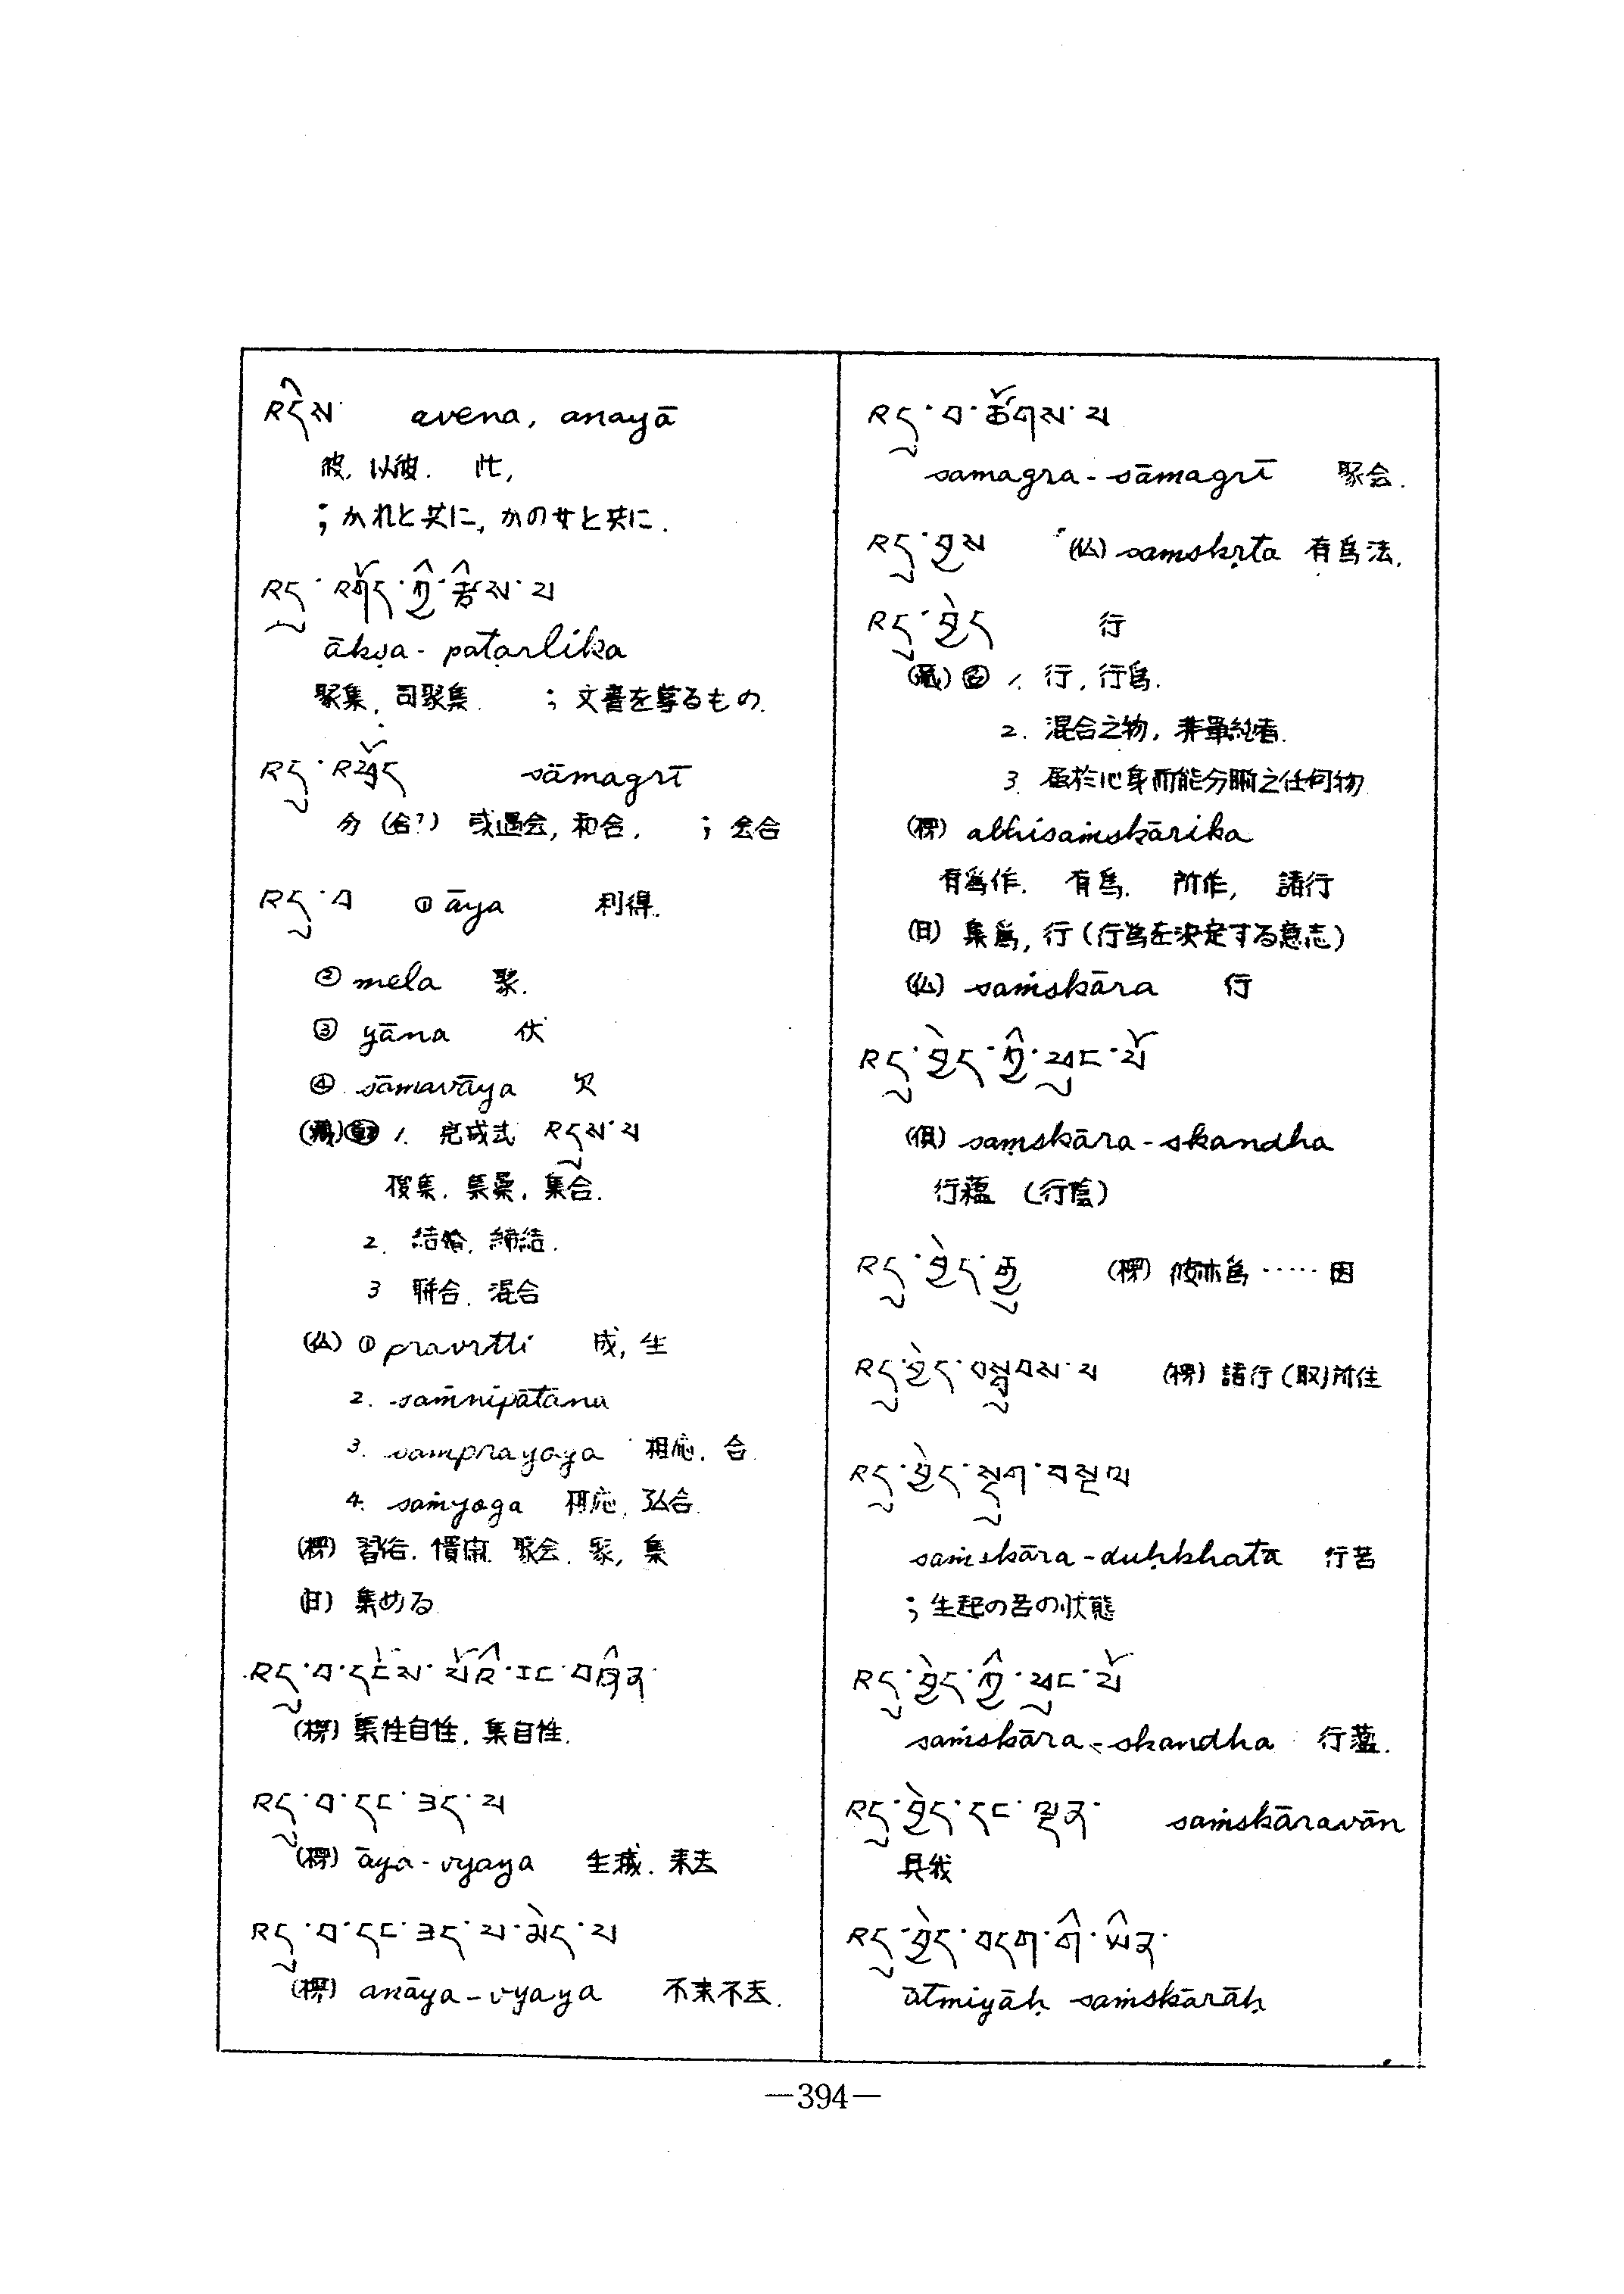 འདིས་ avena, anayā
彼, 以彼. 此,
; かれと共に, かの女と共に.
འདུ་འགོད་ཀྱི་རྩིས་པ
ākṣa - paṭarlika
聚集, 司聚集. ; 文書を るもの.
འདུ་འཕྲོད sāmagrī
分 (合?) 或遇会, 和合. ; 会合
འདུ་བ ① āya 利得.
② mela 聚.
③ yāna 伏
④ sāmavāya 欠
(藏) 1. 完成式 འདུས་པ
集, 集合.
2. 結婚, 締結.
3 聯合, 混合
(仏) ① pravrtti 成, 生
2. saṁnipātana
3. samprayoga 相應, 合
4. saṁyoga 相応, 弘合.
(梛) 習俗. 聚会, 聚, 集
(日) 集める
འདུ་བ་དངོས་པོའི་རང་བཞིན་
(梛) 集性自性, 集自性.
འདུ་བ་དང་འད་པ
(梛) āya - vyaya 生滅. 来去
འདུ་བ་དང་འད་པ་མེད་པ
(梛) anāya - vyaya 不来不去.
འདུ་བ་ཚོགས་པ
samagra - sāmagrī 聚会.
འདུ་བྱས (仏) saṃskṛta 有為法,
འདུ་བྱེད 行
(藏) 名 1. 行, 行為.
2. 混合之物, 非單純者.
3. 属於心身而能分晰之任何物
(梛) abhisaṁskārika
有為作. 有為. 所作, 諸行
(日) 集為, 行 (行為を決定する意志)
(仏) saṁskāra 行
འདུ་བྱེད་ཀྱི་ཕུང་པོ
(倶) saṃskāra - skandha
行蘊 (行陰)
འདུ་བྱེད་རྒྱུ (梛) 彼亦為 ‥‥‥ 因
འདུ་བྱེད་བསྡུབས་པ (梛) 諸行 (取) 所住
འདུ་བྱེད་སྡུག་བསྔལ
saṁskāra - duḥkhatā 行苦
; 生起の苦の状態
འདུ་བྱེད་ཀྱི་ཕུང་པོ
saṁskāra - skandha 行蘊.
འདུ་བྱེད་དང་ལྡན་ saṁskāravān
具我
འདུ་བྱེད་བདག་གི་ཡིན་
ātmiyāḥ saṁskārāḥ
—394—